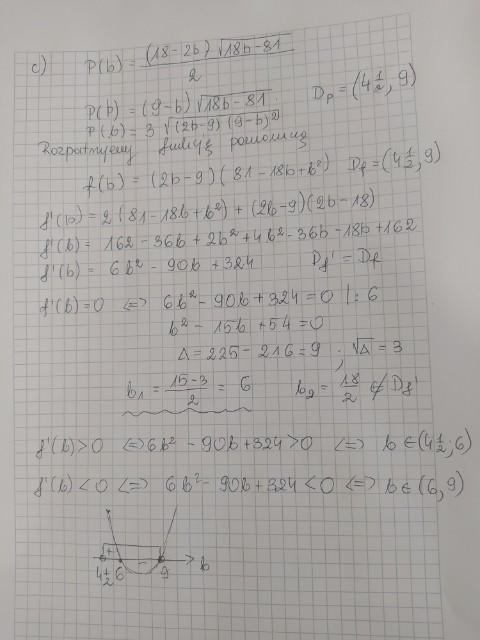 c) P(b) = (18-2b) √18b-81 / 2
P(b) = (9-b) √18b-81 Dp = (4 1/2, 9)
P(b) = 3 √(2b-9) (9-b)²
Rozpatrujemy funkcję pomocniczą
f(b) = (2b-9) (81-18b+b²) Df = (4 1/2, 9)
f'(b) = 2(81-18b+b²) + (2b-9)(2b-18)
f'(b) = 162 - 36b + 2b² + 4b² - 36b - 18b + 162
f'(b) = 6b² - 90b + 324 Df' = Df
f'(b) = 0 <=> 6b² - 90b + 324 = 0 |: 6
b² - 15b + 54 = 0
Δ = 225 - 216 = 9 ; √Δ = 3
b₁ = 15-3 / 2 = 6 b₂ = 18/2 ∉ Df'
f'(b) > 0 <=> 6b² - 90b + 324 > 0 <=> b ∈ (4 1/2; 6)
f'(b) < 0 <=> 6b² - 90b + 324 < 0 <=> b ∈ (6, 9)
+ -
4 1/2 6 9 b